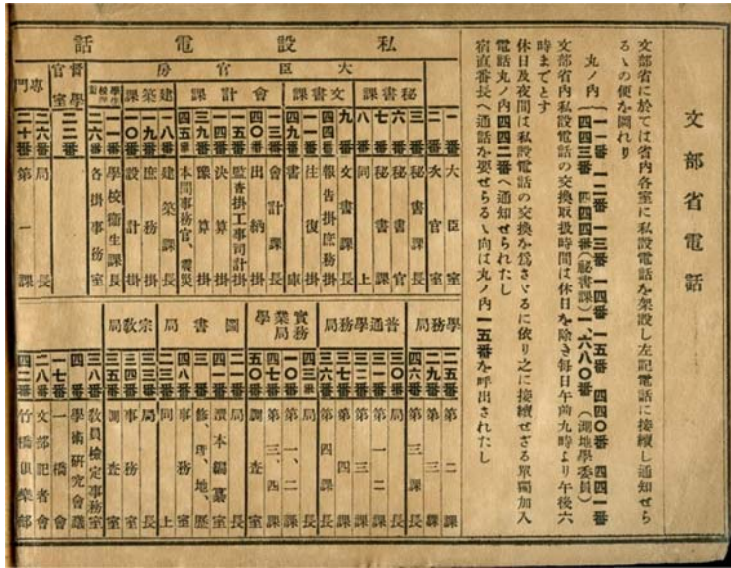 文部省電話
文部省に於ては省内各室に私設電話を架設し左記電話に接續し通知せら
るゝの便を圖れり
丸ノ内(一一番 一二番 一三番 一四番 一五番 四四〇番 四四一番
四四三番 四四四番(秘書課)一、六八〇番(測地學委員)
文部省内私設電話の交換取扱時間は休日を除き每日午前九時より午後六
時までとす
休日及夜間は私設電話の交換を爲さゞるに依り之に接續せざる單獨加入
電話丸ノ内四四二番へ通知せられたし
宿直番長へ通話を要せらるゝ向は丸ノ内一五番を呼出されたし
私設電話
大臣官房
一番 大臣室
二番 次官室
秘書課
三番 秘書課長
六番 秘書官
七番 秘書課
八番 同上
文書課
九番 文書課長
四四番 報告掛庶務掛
一番 往復掛
四九番 書庫
會計課
一三番 會計課長
四〇番 出納掛
五番 監査掛工事司計掛
一四番 決算掛
三九番 豫算掛
四五番 本間事務官、震災
建築課
一八番 建築課長
一九番 庶務掛
一〇番 設計掛
學校衞生課
一一番 學校衞生課長
二六番 各掛事務室
督學官室
二二番
專門
二六番 局長
二十番 第一課
學務局
二五番 第二課
二九番 第三課
普通學務局
三〇番 局長
三一番 第一二課
三二番 第三課
三七番 第四課
三六番 第四課長
實業學務局
四三番 局長
一〇番 第一、二課
四七番 第三、四課
五〇番 調査室
圖書局
二一番 局長
四一番 讀本編纂室
三一番 修、理、地、歷
四八番 事務室
二三番 同上
宗敎局
三三番 局長
三四番 事務室
三五番 調査室
三八番 敎員檢定事務室
四番 學術硏究會議
一七番 一橋會
二八番 文部記者會
四二番 竹橋俱樂部